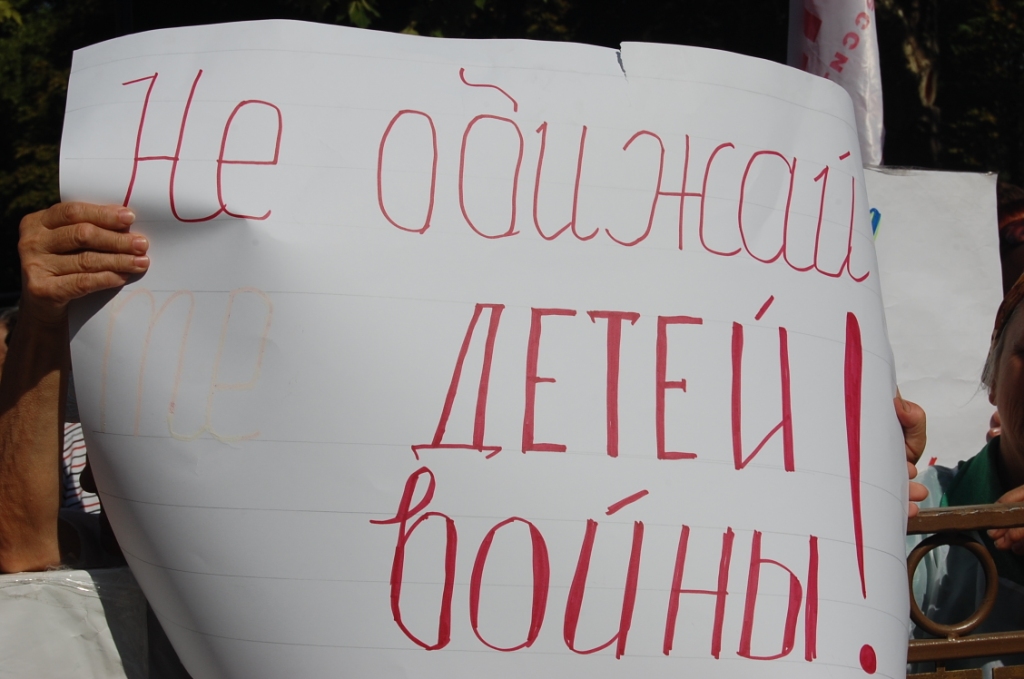 Не обижай
те ДЕТЕЙ!
войны